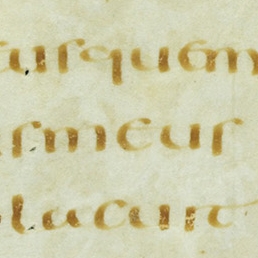 eusquem
us meus
placuit